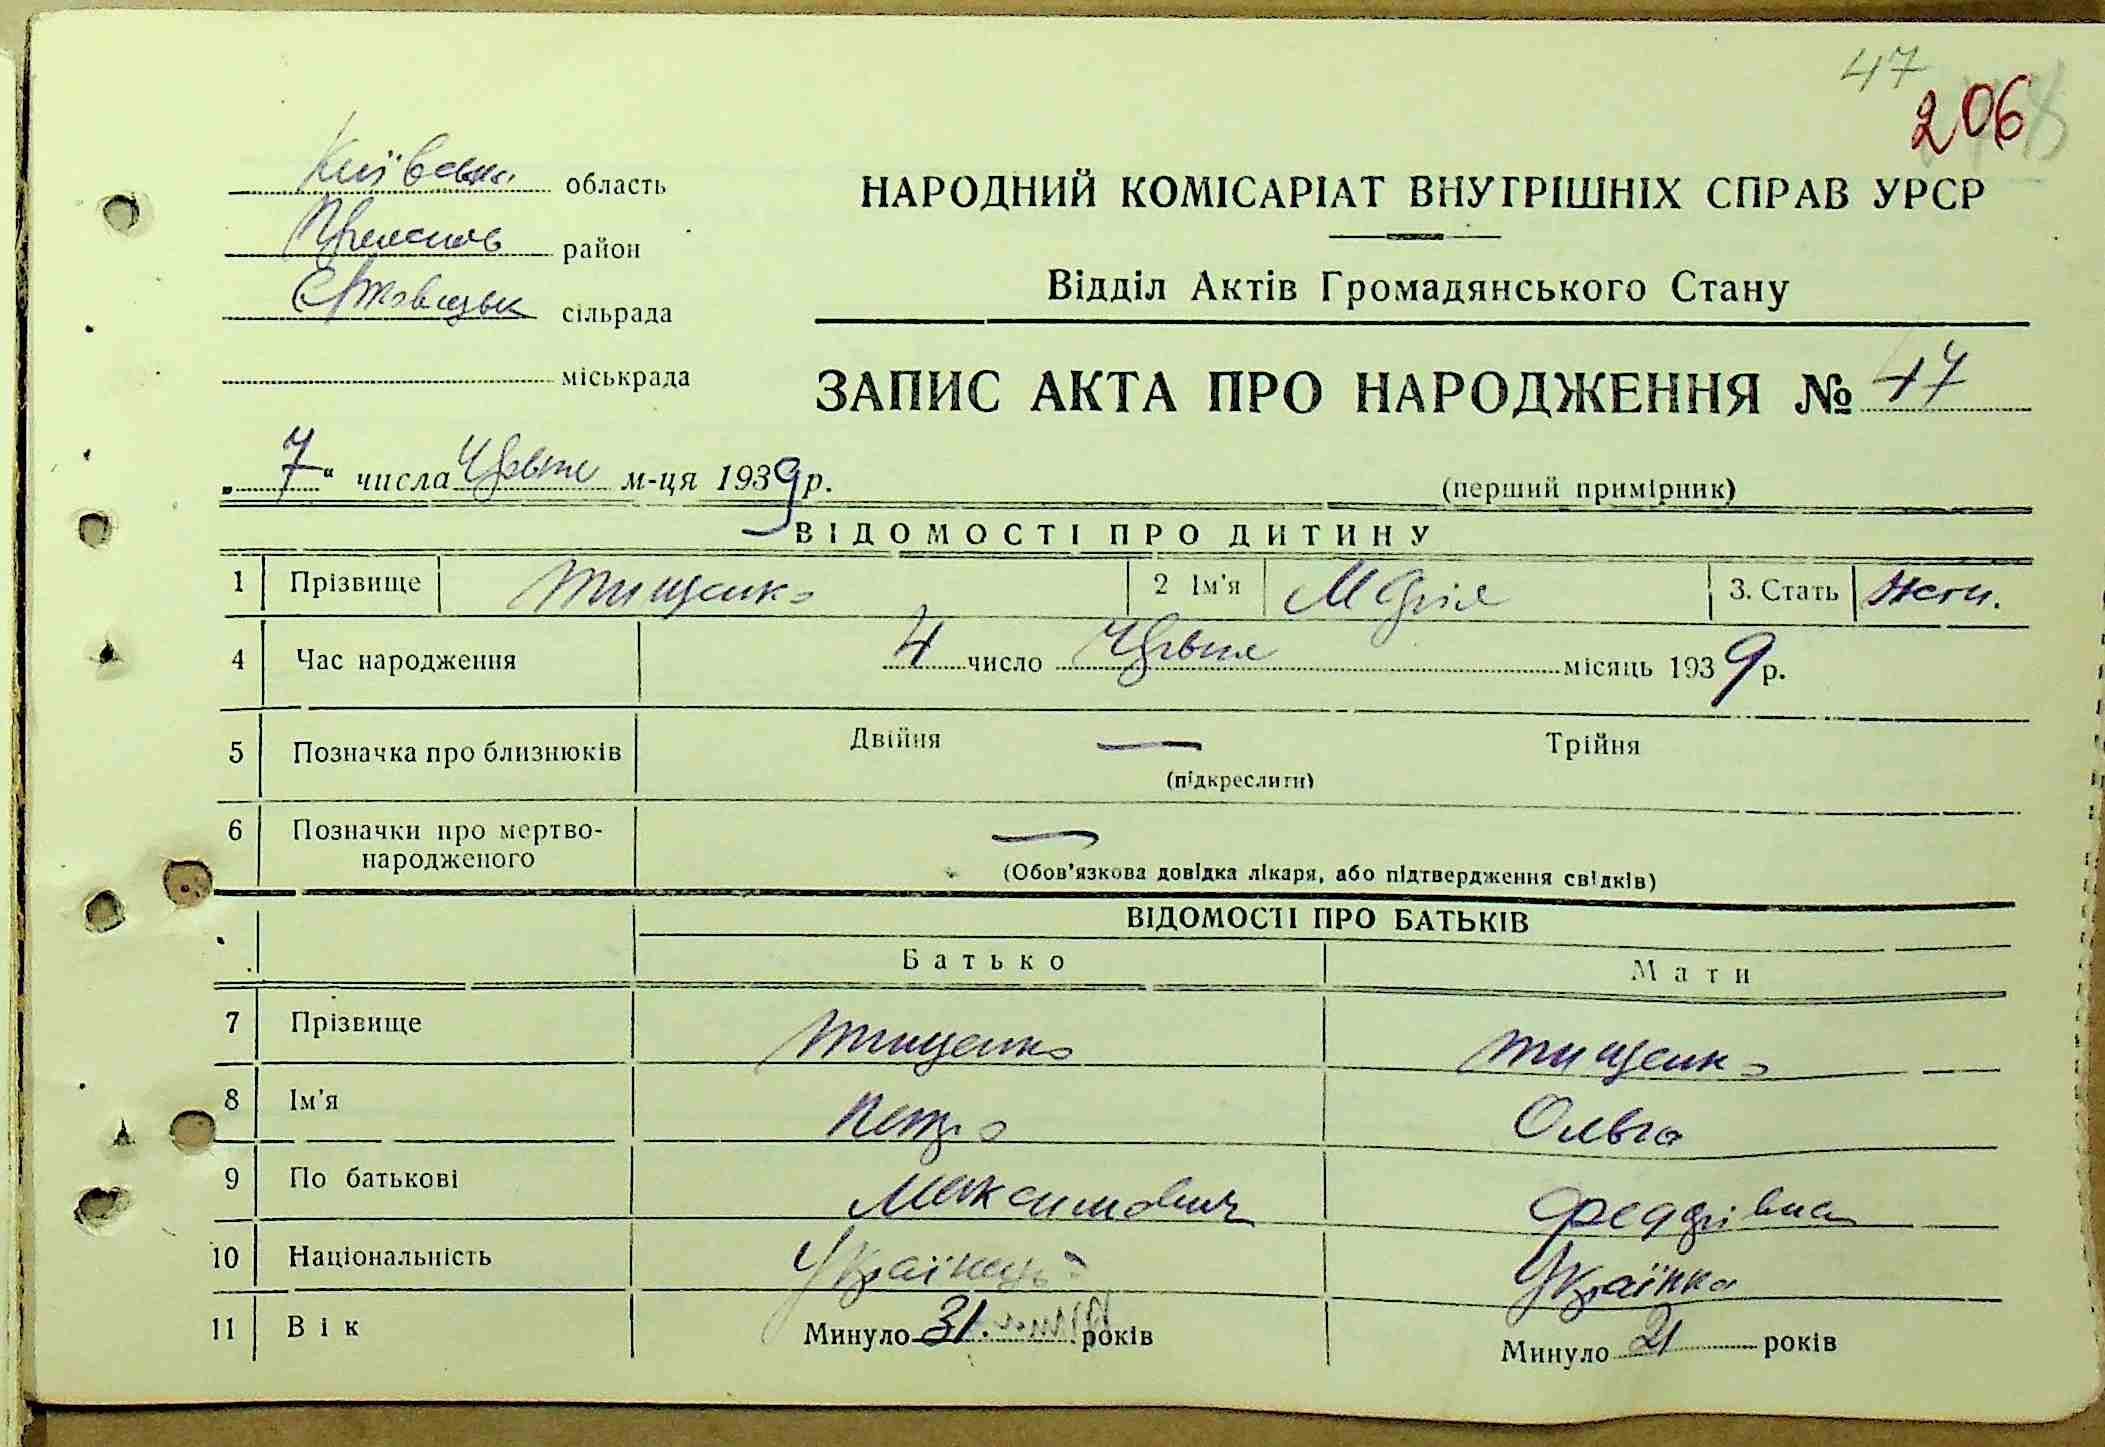 47
206
Київськ. область
район
сільрада
міськрада
НАРОДНИЙ КОМІСАРІАТ ВНУТРІШНІХ СПРАВ УРСР
Відділ Актів Громадянського Стану
ЗАПИС АКТА ПРО НАРОДЖЕННЯ № 47
„7“ числа Червня м-ця 1939 р.
(перший примірник)
ВІДОМОСТІ ПРО ДИТИНУ
1 Прізвище Тищенко 2 Ім'я Марія 3. Стать жін.
4 Час народження 4 число Червня місяць 1939 р.
5 Позначка про близнюків Двійня — Трійня
(підкреслити)
6 Позначки про мертво-
народженого —
(Обов'язкова довідка лікаря, або підтвердження свідків)
ВІДОМОСТІ ПРО БАТЬКІВ
Батько Мати
7 Прізвище Тищенко Тищенко
8 Ім'я Петро Ольга
9 По батькові Максимович Федорівна
10 Національність Українець Українка
11 Вік Минуло 31. років Минуло 21 років